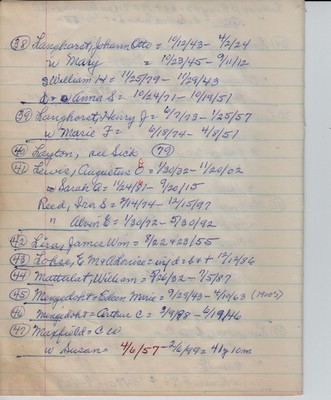 (38) Langhorst, Johann Otto = 10/12/43 - 4/2/24
w Mary = 10/23/45 - 9/11/12
s William H = 11/25/79 - 11/29/43
Anna S = 10/24/71 - 10/19/51
(39) Langhorst, Henry J = 6/7/73 - 1/25/57
w Marie F = 6/18/74 - 4/8/51
(40) Layton, see Sick (79)
(41) Lewis, Augustus E = 1/30/32 - 11/20/02
Sarah A = 11/24/31 - 9/20/15
Reed, Ira S = 9/14/74 - 12/15/97
" Alvin E = 1/30/72 - 5/30/92
(42) Liza, James Wm = 8/22 + 23/55
(43) Lohse, E M = d = b + 12/10/86
(44) Mattulat, William = 5/26/32 - 7/5/87
(45) Mingedoht = Edeen Marie = 9/25/43 - 4/14/63
(46) Mingedoht = Arthur C = 3/9/98 - 6/19/46
(47) Maxfield = C W
w Susan = 4/6/57 - 2/6/99 = 41 y 10 m